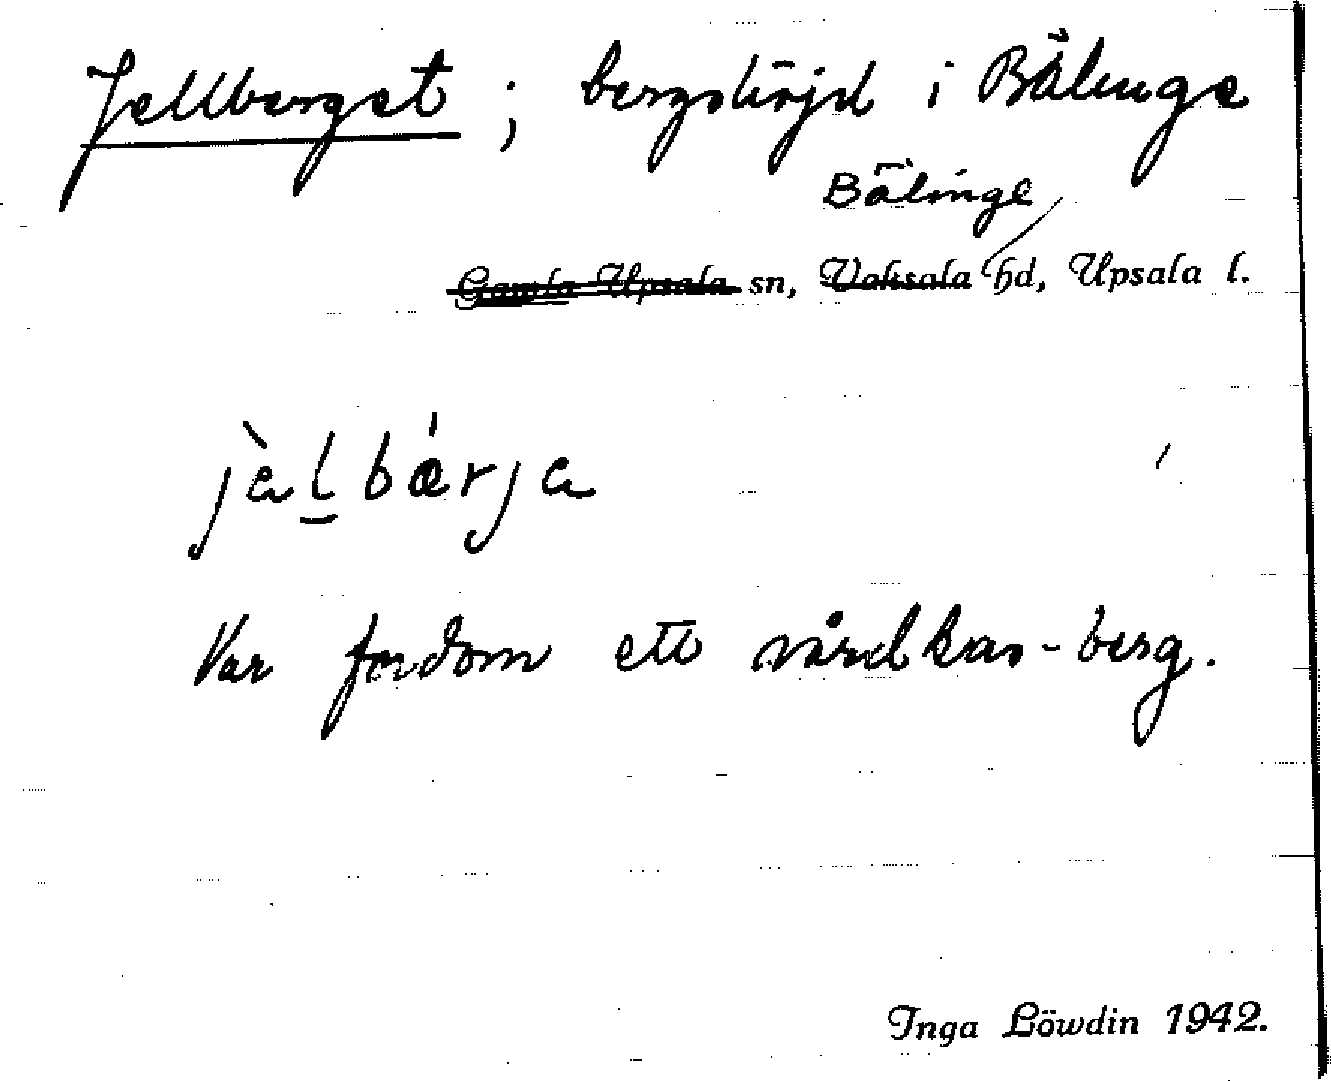 Jellberget ; bergshöjd i Bälinge
Bälinge
Gamla Upsala sn, Vaksala hd, Upsala l.
jàl̠bǽrja
Var fordom ett vårdkas-berg.
Inga Löwdin 1942.